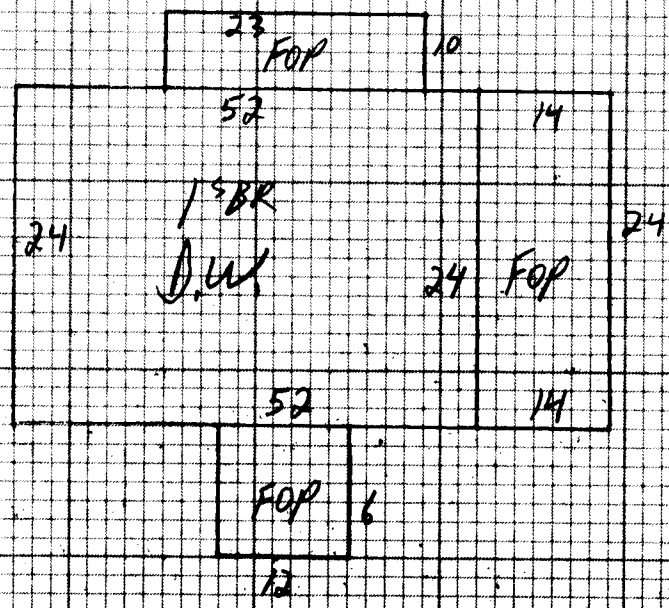 23
FOP
10
52
14
1 S BR
D.W.
24
24
FOP
24
52
14
FOP
6
12